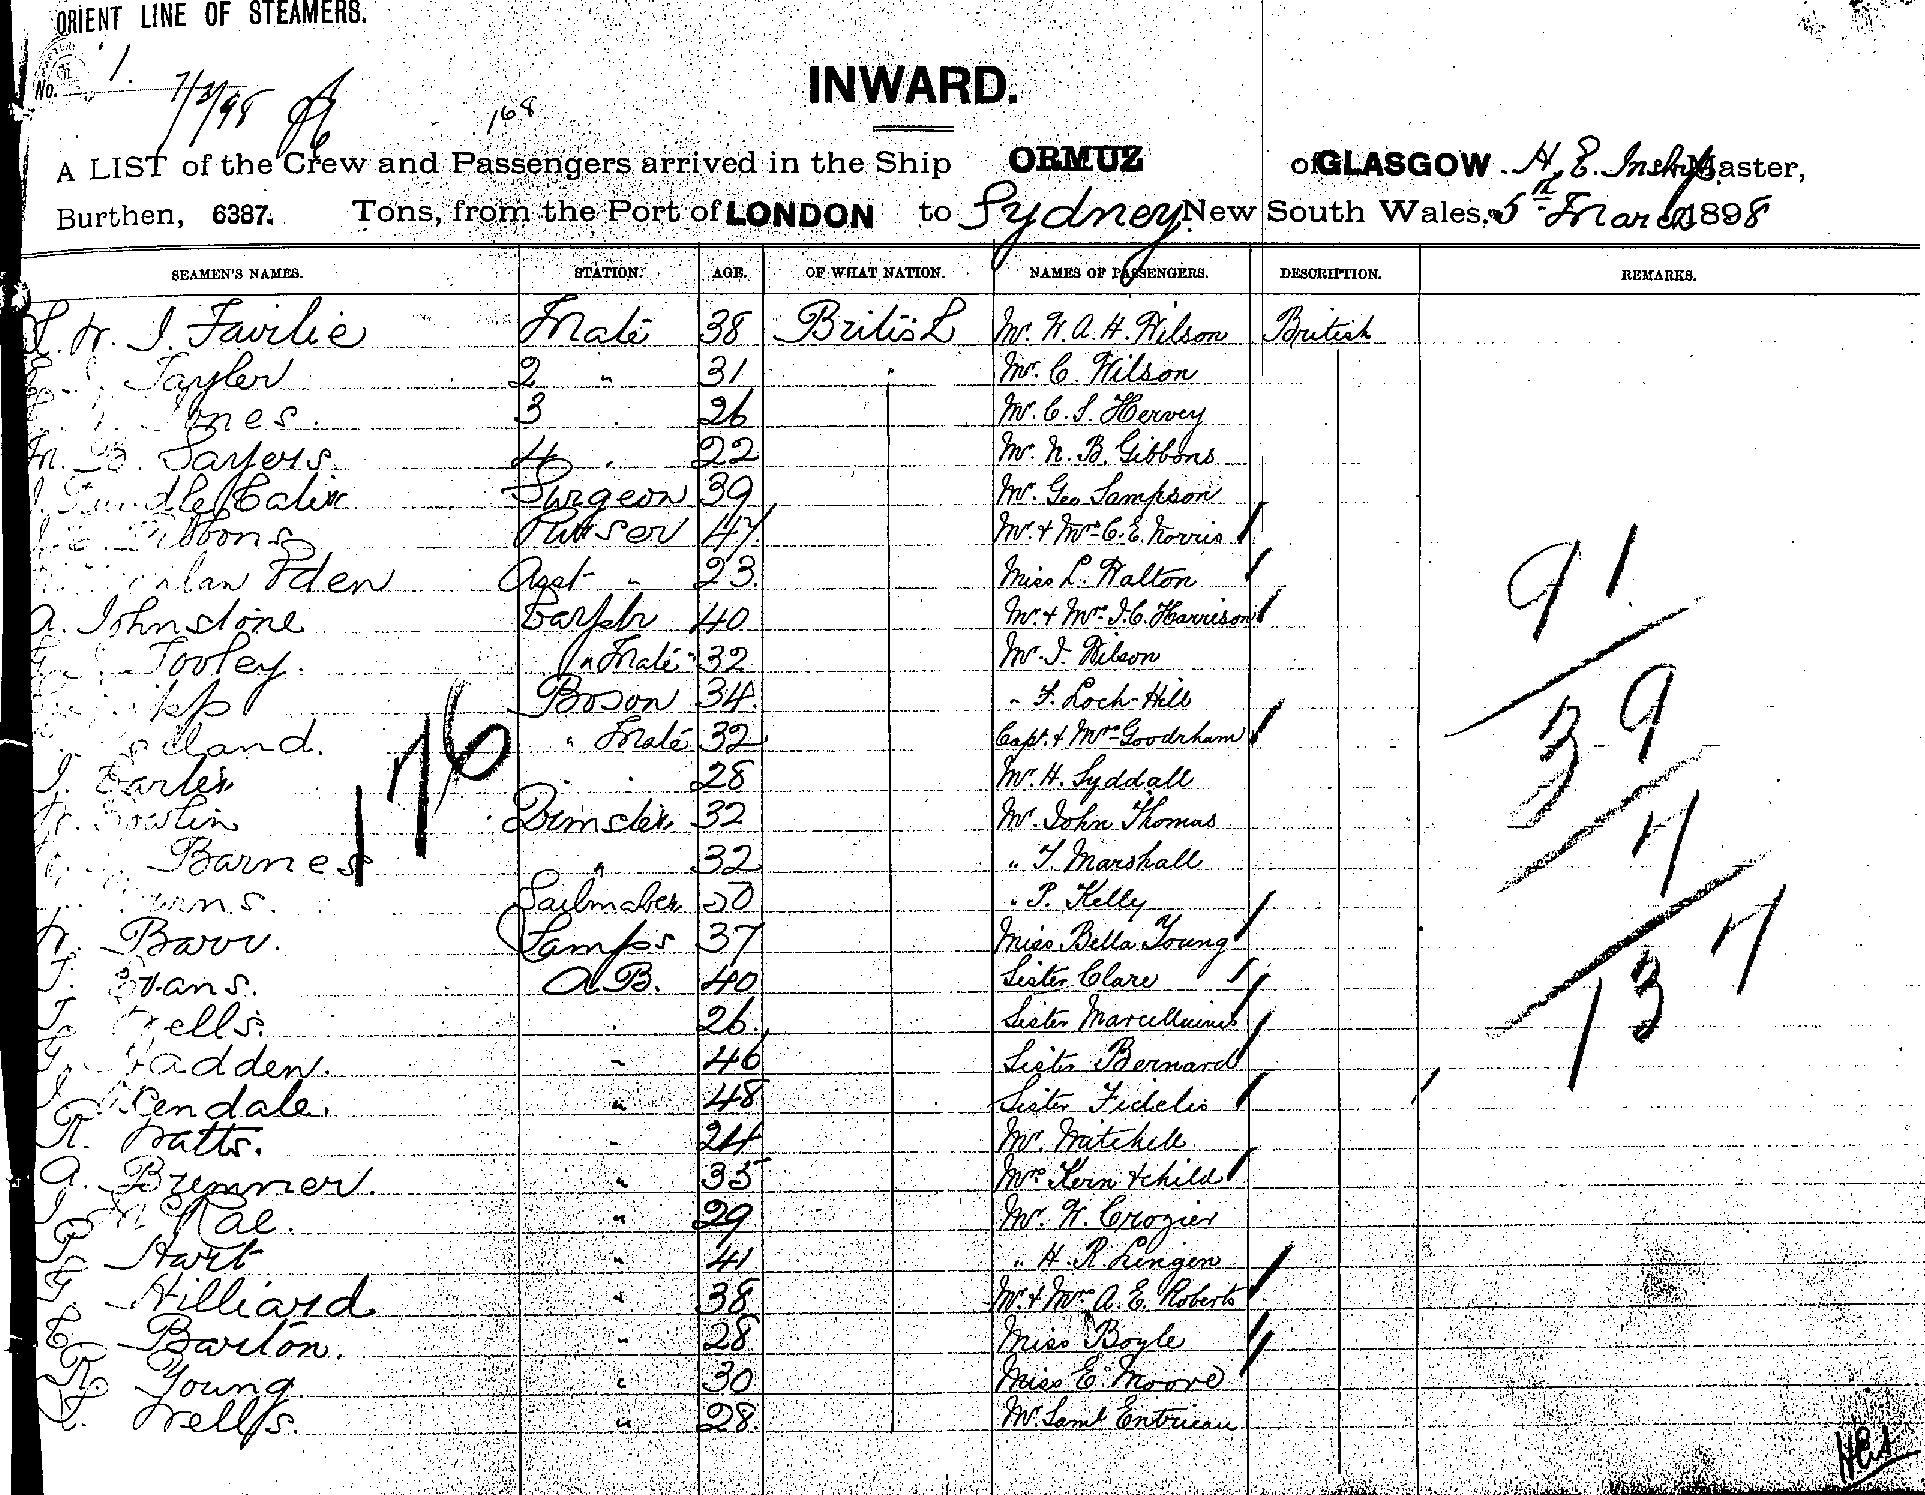 ORIENT LINE OF STEAMERS.
No. 1.
7/3/98
168
INWARD.
A LIST of the Crew and Passengers arrived in the Ship ORMUZ of GLASGOW. H. E. Inskip Master,
Burthen, 6387. Tons, from the Port of LONDON to Sydney New South Wales, 5th March 1898
SEAMEN'S NAMES. STATION. AGE. OF WHAT NATION. NAMES OF PASSENGERS. DESCRIPTION. REMARKS.
Fairlie Mate 38 British Mr. W. A. H. Wilson British
Tayler 2 " 31 " Mr. C. Wilson
3 26 Mr. C. S. Hervey
B. Sayers. 4 22 Mr. N. B. Gibbons
Surgeon 39 Mr. Geo Sampson
Gibbons Purser 47 Mr. & Mrs C. E. Norris
Eden Asst " 23. Miss L. Walton
A. Johnstone 40 Mr. & Mrs J. C. Harrison
Tooley. " Mate 32 Mr. J. Wilson
Boson 34. " F. Loch-Hill
" Mate 32 Capt. & Mrs Goodrham
28 Mr. H. Syddall
32 Mr. John Thomas
Barnes " 32 " T. Marshall
Sailmaker 50 " P. Kelly
Barr. Lamps 37 Miss Bella Young
Evans. A.B. 40 Sister Clare
Wells. 26. Sister
" 46 Sister Bernard
" 48 Sister Fidelis
R. Watts. " 24 Mr. Mitchell
A. Bremner. " 35 Mrs Kern & child
McRae. " 29 Mr. W. Crozier
Hart " 41 " H. R. Lingen
G. Hilliard " 38 Mr. & Mrs A. E. Roberts
Barton. " 28 Miss Boyle
R. Young " 30 Miss E. Moore
Wells. " 28. Mr. Saml
176
91
39
7
137